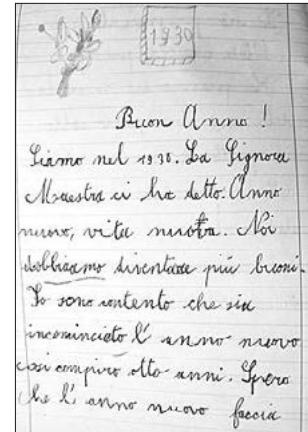 1930
Buon Anno!
Siamo nel 1930. La Signora
Maestra ci ha detto: Anno
nuovo, vita nuova. Noi
dobbiamo diventare più buoni.
Io sono contento che sia
incominciato l'anno nuovo
così compirò otto anni. Spero
che l'anno nuovo faccia